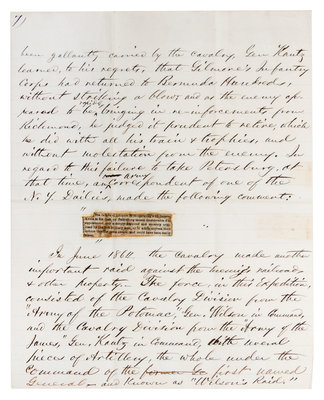 7)
been gallantly carried by the cavalry, Gen Kautz
learned, to his regrets, that Gilmore's Infantry
Corps had returned to Bermuda Hundreds,
without striking a blow; and as the enemy ap-
peared to be rapidly bringing in re-inforcements from
Richmond, he judged it prudent to retire, which
he did with all his train & trophies, and
without molestation from the enemy. In
regard to this failure to take Petersburg, at
that time, an army correspondent of one of the
N.Y. Dailies, made the following comment:
In June 1864 the Cavalry made another
important raid against the enemy's railroads
& other property. The force, in this Expedition,
consisted of the Cavalry Division from the
"Army of the Potomac, Gen. Wilson in Command,
and the Cavalry Division from the "Army of the
James," Gen. Kautz in Command, with several
pieces of Artillery, the whole under the
Command of the first named
General - and known as "Wilson's Raid."